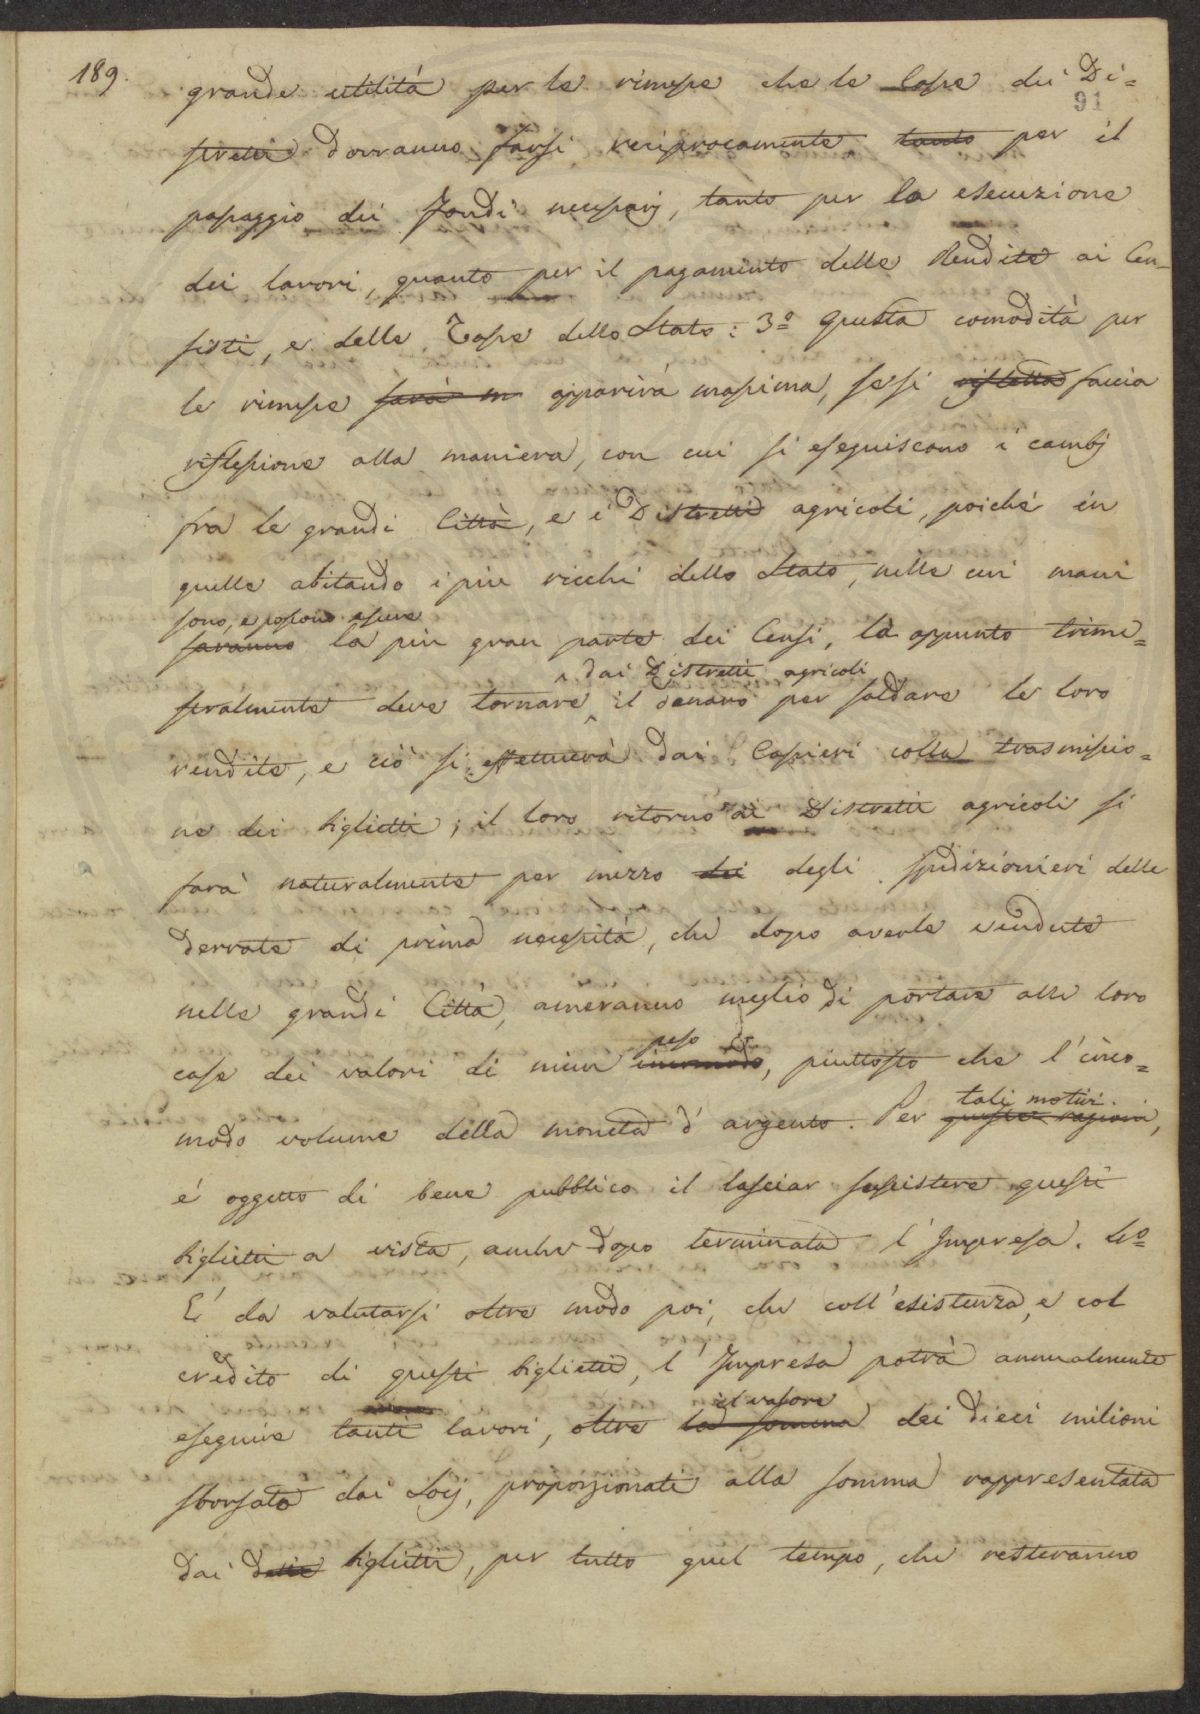 189.
91
grande utilità per le rimesse che le Casse dei Di=
stretti dovranno farsi reciprocamente tanto per il
passaggio dei fondi necessarj, tanto per la esecuzione
dei lavori, quanto per il pagamento delle Rendite ai Cen-
sisti, e delle Tasse dello Stato: 3º questa comodità per
le rimesse sarà m apparirà massima, se si rifletta faccia
riflessione alla maniera, con cui si eseguiscono i cambj
fra le grandi Città, e i Distretti agricoli, poichè in
quelle abitando i più ricchi dello Stato, nelle cui mani
sono, e possono essere
saranno la più gran parte dei Censi, là appunto trime=
dai Distretti agricoli
stralmente deve tornare il denaro per saldare le loro
rendite, e ciò si effettuerà dai Cassieri colla trasmissio=
ne dei biglietti; il loro ritorno ai Distretti agricoli si
farà naturalmente per mezzo dei degli spedizionieri delle
derrate di prima necessità, che dopo averle vendute
nelle grandi Città, ameranno meglio di portare alle loro
peso
case dei valori di niun incomodo, piuttosto che l'inco=
tali motivi.
modo volume della moneta d'argento. Per queste ragioni,
è oggetto di bene pubblico il lasciar sussistere questi
biglietti a vista, anche dopo terminata l'Impresa. 4º
E' da valutarsi oltre modo poi, che coll'esistenza, e col
credito di questi biglietti, l'Impresa potrà annualmente
il valore
eseguire tanti lavori, oltre la somma dei dieci milioni
sborsata dai Socj, proporzionati alla somma rappresentata
dai detti biglietti, per tutto quel tempo, che resteranno